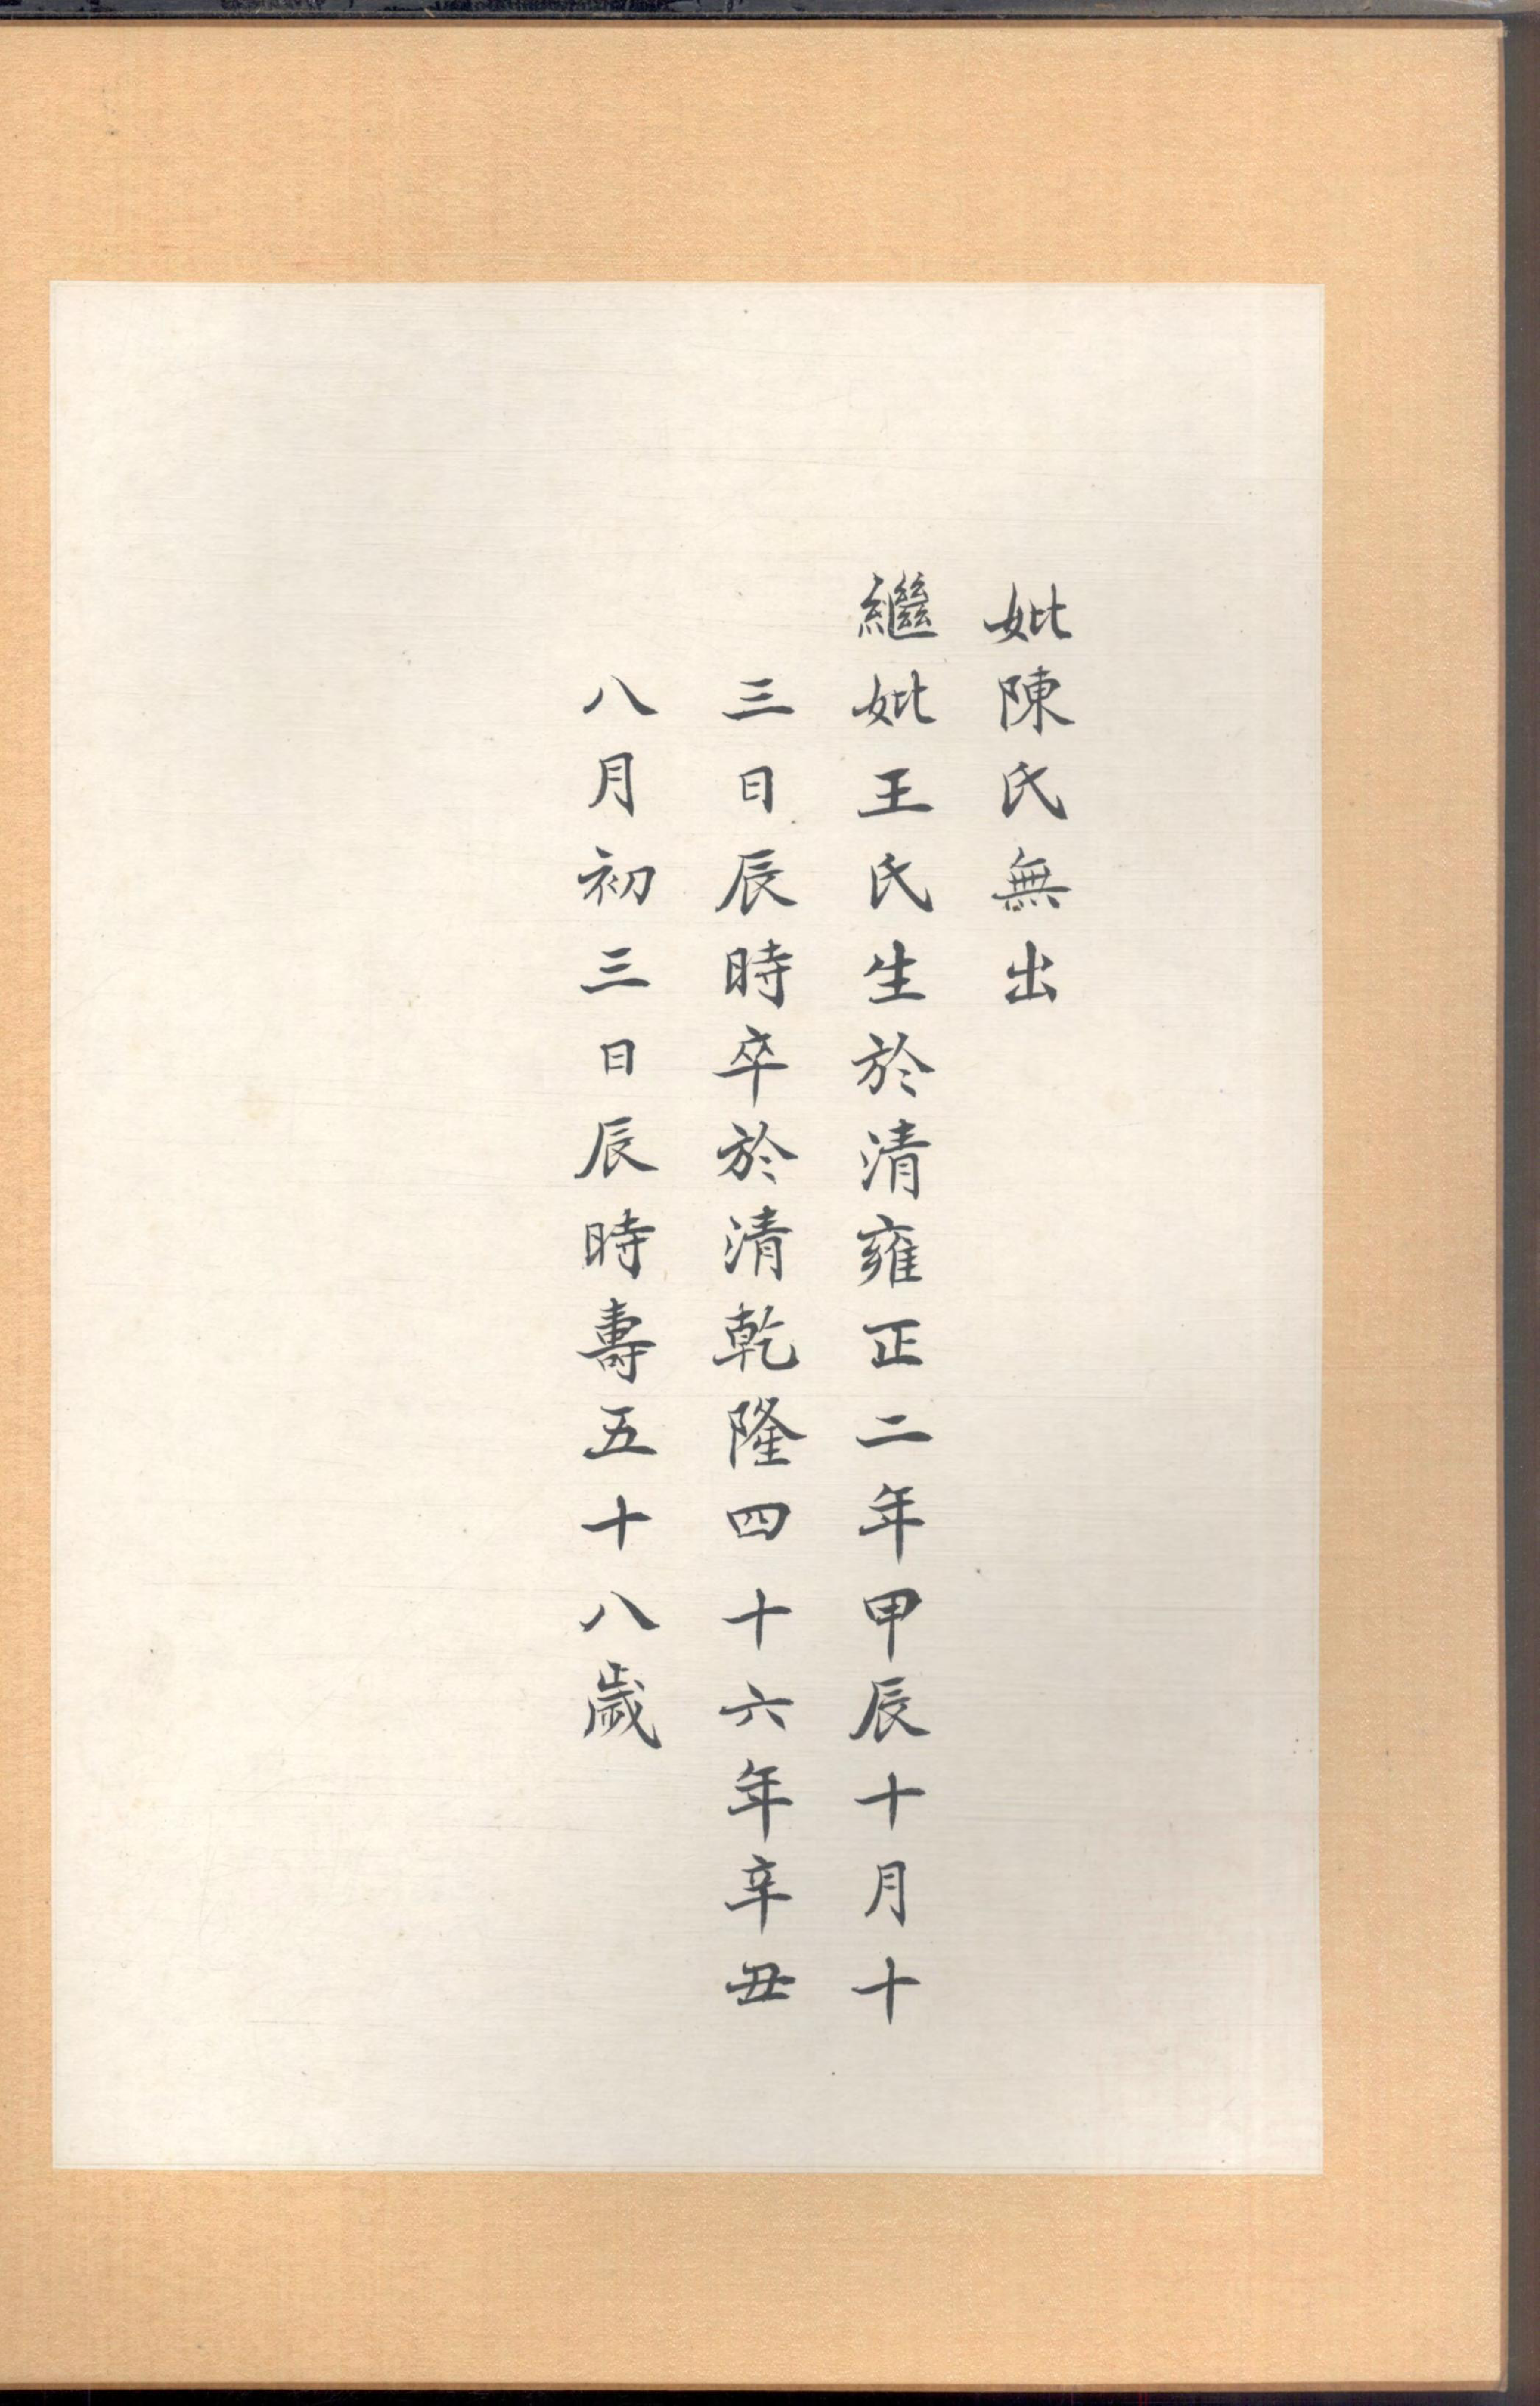 妣陳氏無出
繼妣王氏生於清雍正二年甲辰十月十
三日辰時卒於清乾隆四十六年辛丑
八月初三日辰時壽五十八歲